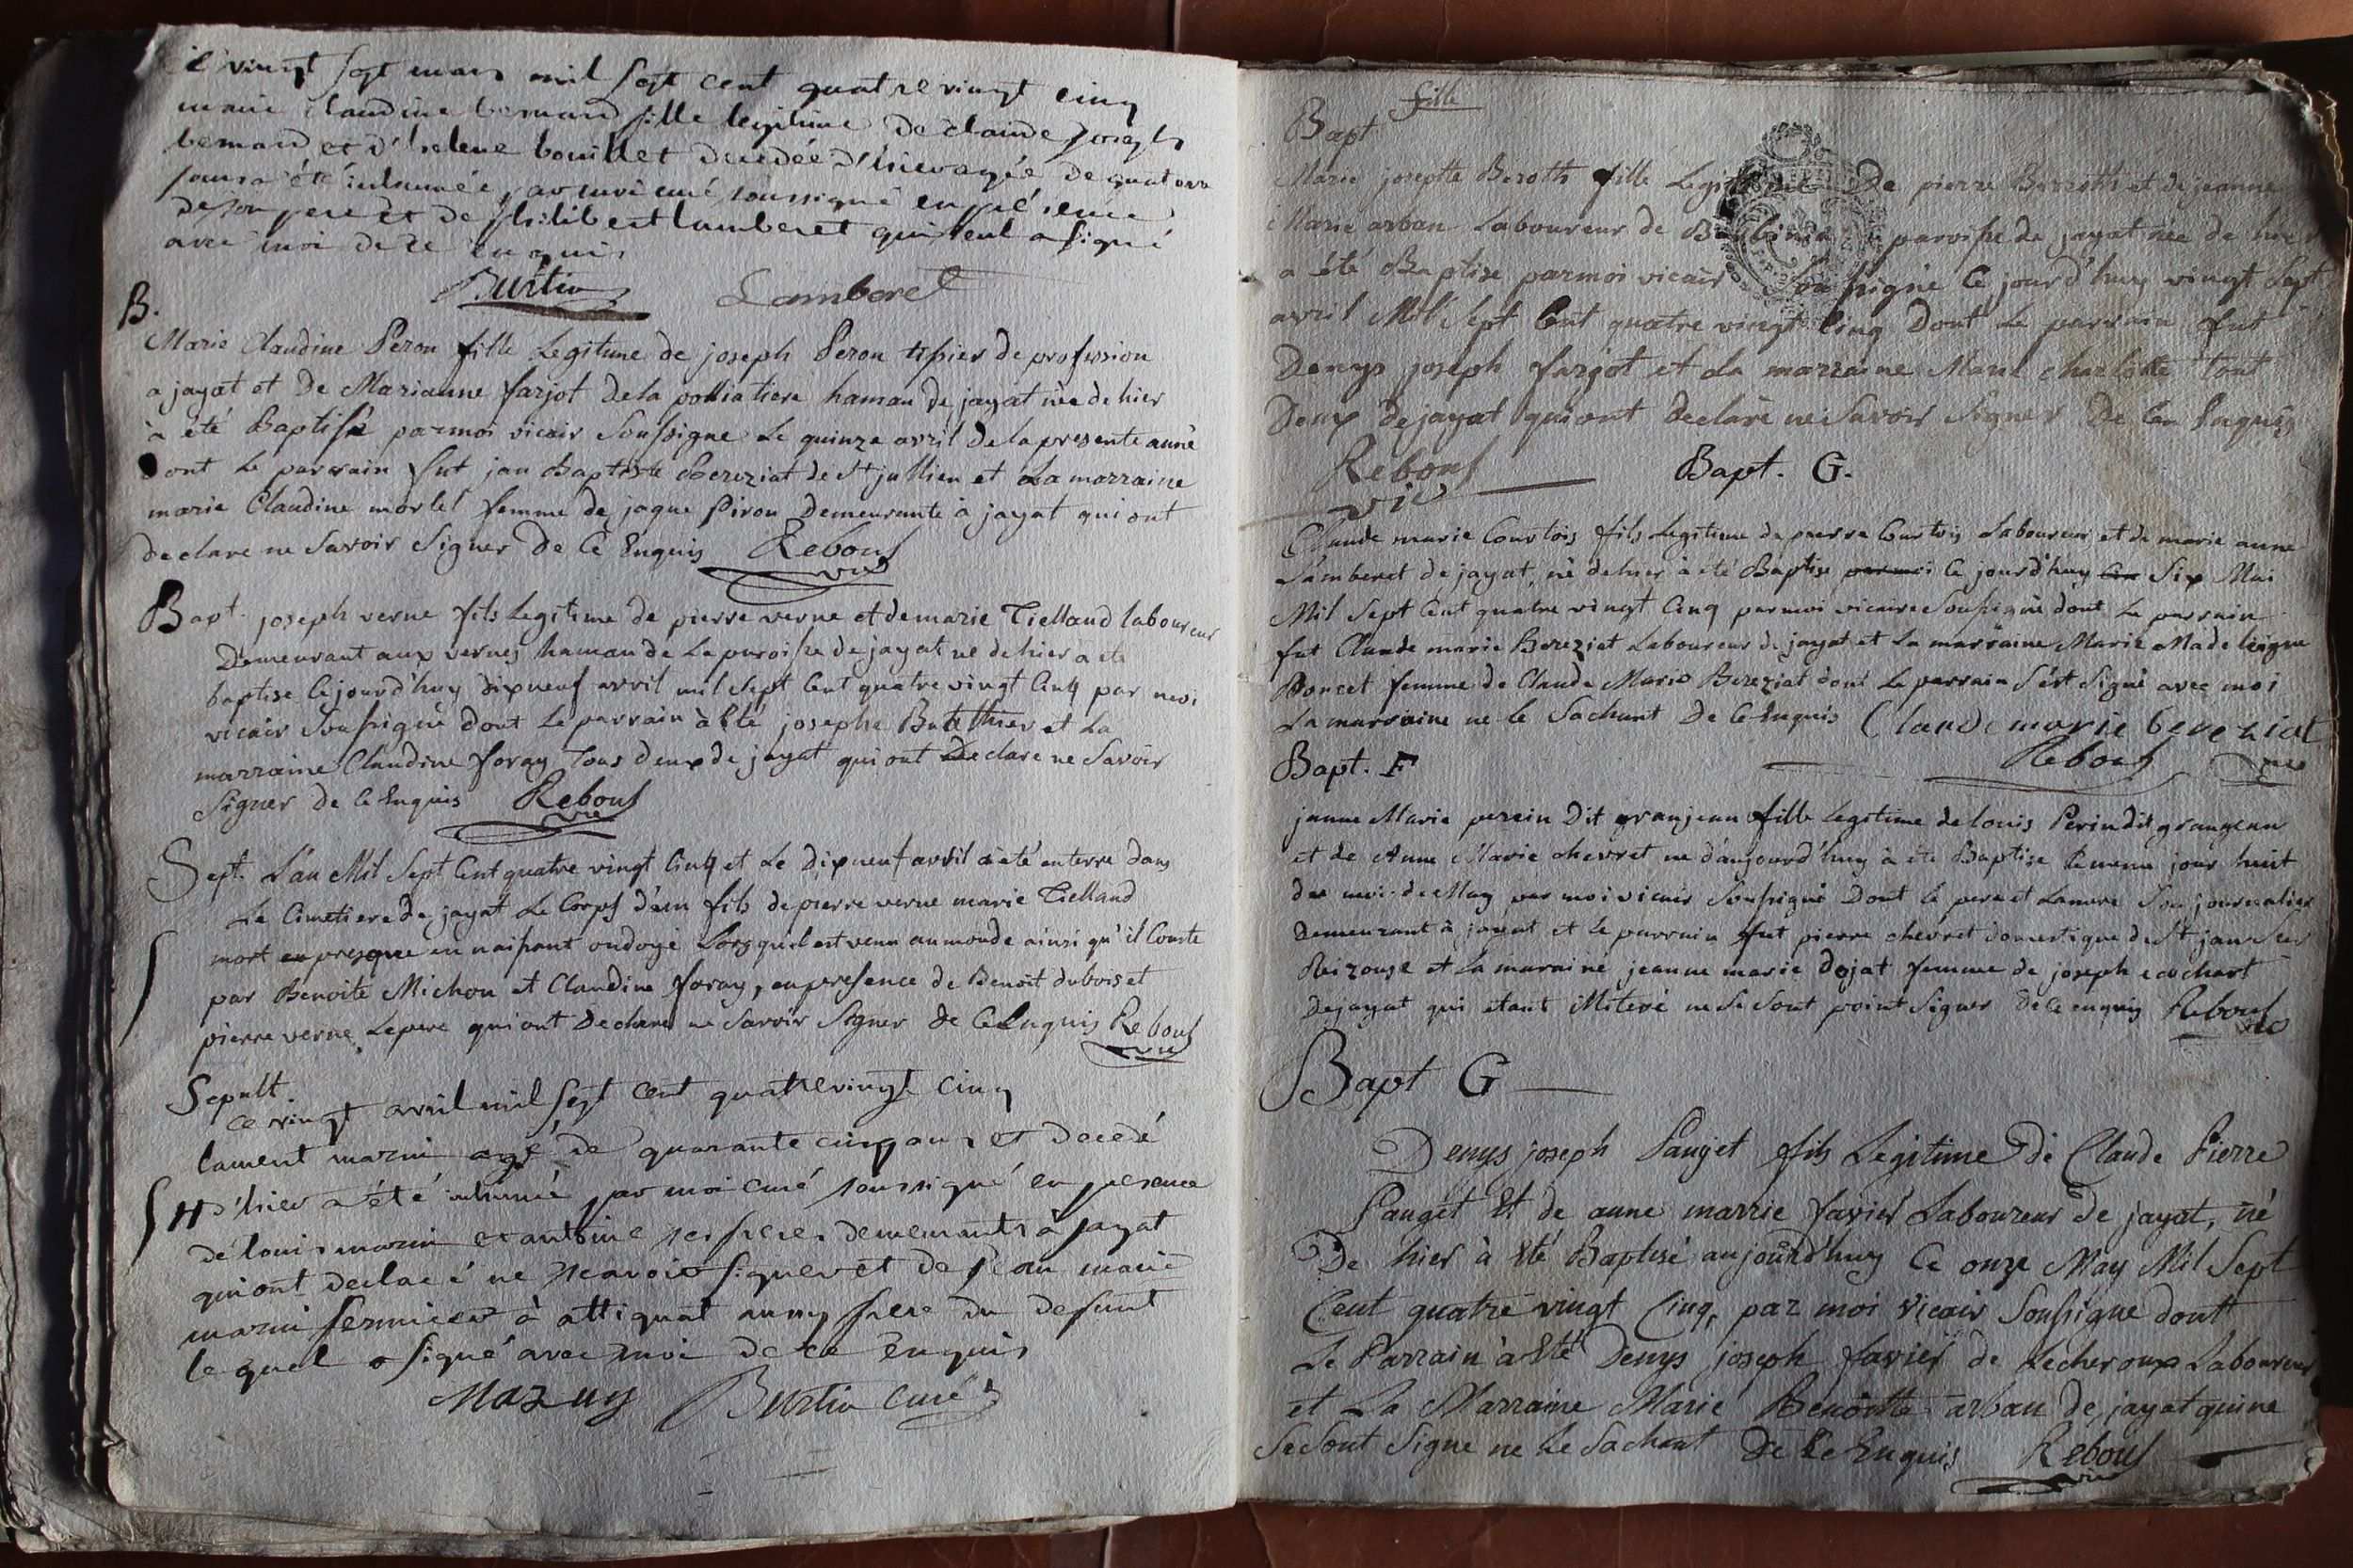 vingt sept mars mil sept cent quatre vingt cinq
marie claudine bernard fille legitime de claude joseph
bernard et d'helene bouillet decedée d'hier agée de quatorze
jours a été inhumée par moi curé soussigné en présence
de son pere et de philibert lamberet qui seul a signé
avec moi de ce enquis
Burtin Lamberet
B.
Marie Claudine Peron fille Legitime de joseph Peron tissier de profession
a jayat et De Marianne farjot De la polliatiere hamau de jayat née de hier
à été Baptisé parmoi vicair Soussigne Le quinze avril De la presente année
Dont Le parrain fut jan Baptiste Bereziat de St jullien et La marraine
marie Claudine morlel femme de jaque Piron Demeurante à jayat qui ont
declare ne Savoir Signer De Ce Enquis Rebouf
vic
Bapt. joseph verne fils Legitime de pierre verne et de marie Tielland laboureur
Demeurant aux vernes hamau de La paroisse de jayat né de hier a ete
baptise Ce jourd'huy dixneuf avril mil Sept Cent quatre vingt Cinq par moi
vicair Soussigné dont Le parrain à Eté josephe Buathier et La
marraine Claudine foray Tous deux de jayat qui ont Declare ne Savoir
Signer De Ce Enquis Rebouf
vic
Sept. L'an Mil Sept Cent quatre vingt Cinq et Le Dixneuf avril a eté enterre Dans
Le Cimetiere de jayat Le Corps d'un fils de pierre verne marie Tielland
mort presque en naissant ondoyé Lorsquil est venu au monde ainsi qu'il Conste
par Benoite Michon et Claudine foray, en presence de Benoit dubois et
pierre verne Le pere qui ont Declare ne Savoir Signer De Ce Enquis Rebouf
vic
Sepult.
ce vingt avril mil sept cent quatre vingt cinq
laurent mazui agé de quarante cinq ans et decedé
d'hier a été inhumé par moi curé soussigné en presence
de louis mazui et antoine ses freres demeurants à jayat
qui ont declaré ne scavoir signer et de jean marie
mazui fermier à attignat aussy frere du defunt
le quel a signé avec moi de ce enquis
Mazuy Burtin curé
fille
Bapt
Marie josepthe Beroth fille Legitime De pierre Berroth et de jeanne
Marie arban Laboureur de paroisse de jayat née de hier
a été Baptise parmoi vicair Soussigné Ce jourd'huy vingt Sept
avril Mil Sept Cent quatre vingt Cinq Dont Le parrain fut
Denys joseph farjot et La marraine Marie charlotte tout
Deux de jayat qui ont declare ne Savoir Signer De Ce Enquis
Rebouf
vic
Bapt. G.
Claude marie Courtois fils Legitime de pierre Courtois Laboureur et de marie anne
Lamberet de jayat, né de hier à été Baptise parmoi Ce jourd'huy Six Mai
Mil Sept Cent quatre vingt Cinq par moi vicaire Soussigné dont Le parrain
fut Claude marie Bereziat Laboureur de jayat et La marraine Marie Madeleigne
Poncet femme de Claude Marie Bereziat dont Le parrain S'est Signé avec moi
La marraine ne le Sachant De Ce Enquis Claude marie bereziat
Rebouf vic
Bapt. F
janne Marie perrin Dit granjean fille Legitime de louis Perin dit grangean
et de Anne Marie chevret ne d'aujourd'huy à ete Baptise le meme jour huit
du moi de May par moi vicair Soussigné Dont le pere et La mere Son journalier
Demeurant à jayat et le parrain fut pierre chevret domestique de St jan Sur
Reizouse et La maraine jeanne marie dojat femme de joseph cochart
De jayat qui etant iliteré ne Se Sont point Signer de ce enquis Rebouf
vic
Bapt G
Denys joseph Pauget fils Legitime de Claude Pierre
Pauget Et de anne marrie favier Laboureur de jayat, né
De hier à Eté Baptisé aujourd'huy Ce onze May Mil Sept
Cent quatre vingt Cinq, par moi vicair Soussigne dont
Le Parrain à Eté Denys joseph favier de Lecheroux Laboureur
et La Marraine Marie Benoitte arban de jayat qui ne
Se Sont Signe ne Le Sachant De Ce Enquis Rebouf
vic